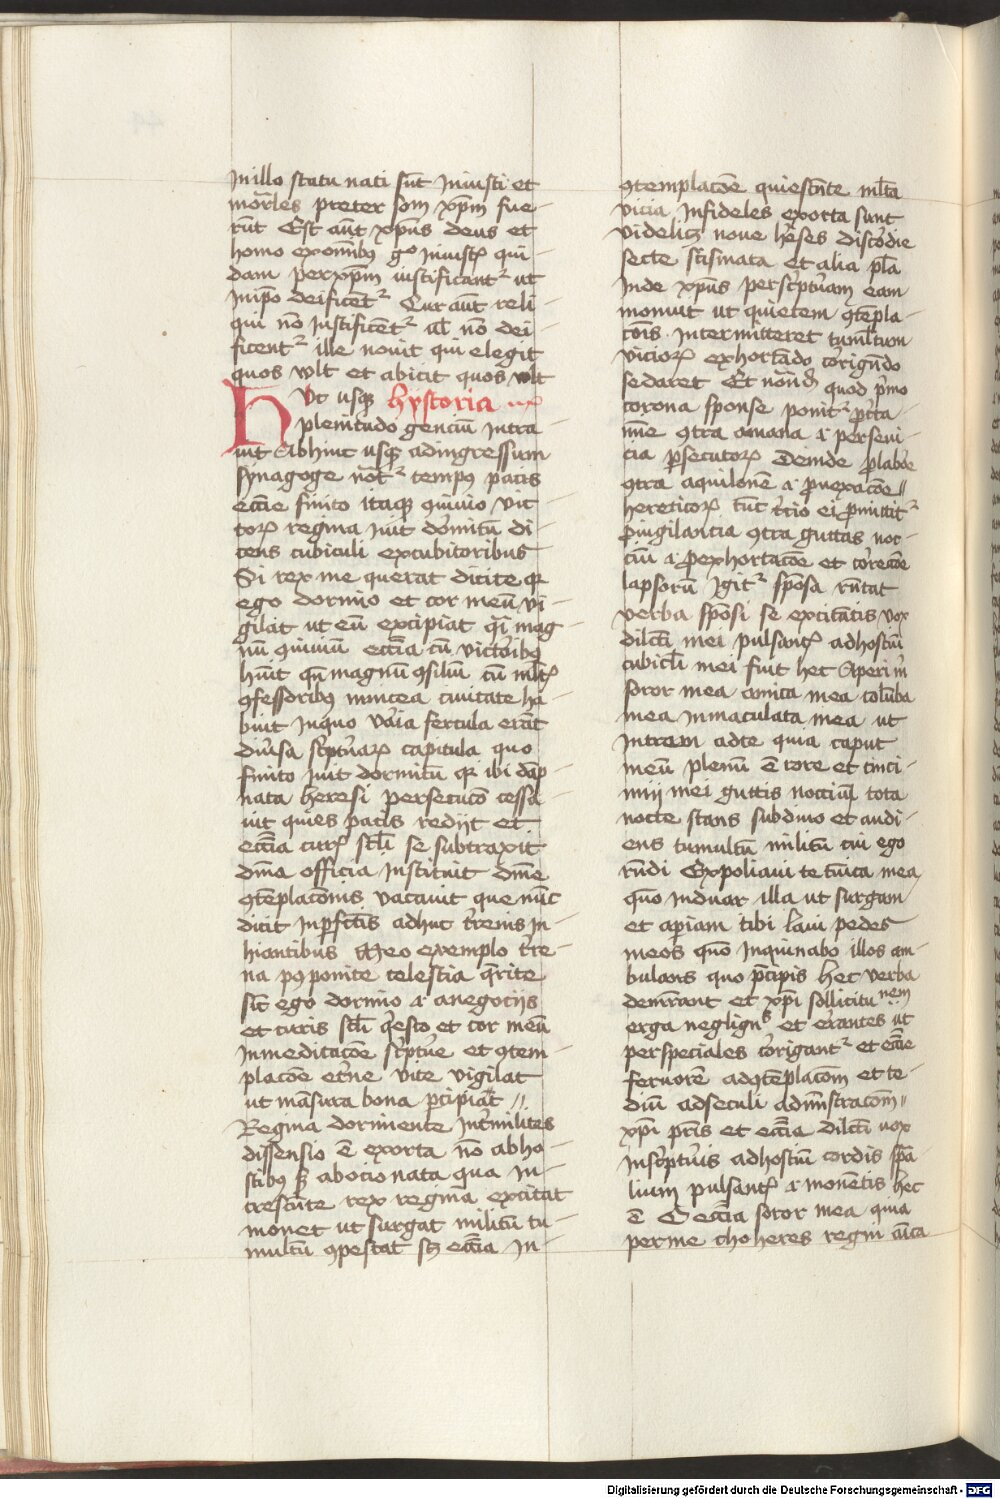 In illo statu nati sūt Iniusti et
mor̄les preter som xp̄m fue-
rūt Est aūt xp̄us deus et
homo exom̄ibꝰ gͦ Iniustꝭ qui-
dam per xp̄m iustificantꝛ ut
In ip̄o deificētꝛ Cur aūt reli-
qui nō Iustificētꝛ ul̄ nō dei-
ficentꝛ ille nouit qui elegit
quos vult et abicit quos vult
HUc usqꝫ hystoria
plenitudo genciū Intra-
uit Abhinc usqꝫ ad ingressum
synagoge not̄ꝛ tempꝰ pacis
eccīe finito itaqꝫ quiuio vic
toꝝ regina iuit dormitū di-
cens cubiculi excubitoribus
Si rex me querat dicite qꝫ
ego dormio et cor meū vi-
gilat ut eū excipiat qi mag
nū ꝯuiuiū eccīa cū victoribꝰ
huit qn̄ magnū ꝯsiliū cū ml̄tꝭ
ꝯfessoribꝰ in nicea ciuitate ha-
buit In quo varia fercula erāt
diuersa sc̄ptūaꝝ capitula quo
finito iuit dormitū qꝫ ibi dāp-
nata heresi persecucō cessa-
uit quies pacis redijt et
eccīa curꝭ sc̄li se subtraxit
diuīa officia instituit diuīe
ꝯtēplacōnis vacauit que nūc
dicit Inp̄fectis adhuc t̄renis In-
hiantibus Meo exemplo t̄re-
na pꝰponite celestia q̄rite
sic̄ ego dormio ⁊ a negocijs
et curis sc̄li q̄esco et cor meū
In meditacōe sc̄ptūe et ꝯtem-
placōe et̄ne vite vigilat
ut mansura bona p̄cipiat //
Regina dormiente Int̄ milites
dissensio ē exorta nō ab ho-
stibꝰ sꝫ ab ocio nata qua In-
crescēte rex reginā excitat
monet ut surgat militū tu-
multū ꝯpescat scꝫ eccīa In-
ꝯtemplacōe quiescēte ml̄ta
vicia Infideles exorta sunt
videlicꝫ noue hēses discordie
secte scismata Et alia pl̄a
Inde xp̄us per sc̄ptūam eam
monuit ut quietem ꝯtēpla-
cōis Intermitteret tumltum
vicioꝝ exhortādo corigēdo
sedaret Et nōnd̄ quod p̄mo
corona sponse ponitꝛ
ꝯtra amana ⁊ persecu-
cia persecutoꝝ Deinde p̄ labore
ꝯtra aquilonē ⁊ p̄ uexacōe //
hereticoꝝ tūc t̄cio ei p̄mittitꝛ
p̄ uigilancia ꝯtra guttas noc-
ciū ⁊ p̄ exhortacōe et corecōe
lapsorū Igitꝛ sp̄osa rētat
verba sp̄osi se excitātis vox
dilc̄ti mei pulsantꝭ ad hostiū
cubicl̄i mei fuit hec Aperi m̄
soror mea amica mea colūba
mea Inmaculata mea ut
Intrem ad te quia caput
meū plenū ē rore et cinci-
nni mei guttis nocciū tota
nocte stans sub diuo et audi-
ens tumultū militū cui ego
r̄ndi Expoliaui te tūica mea
quō Induar illa ut surgam
et aperiam tibi Laui pedes
meos quō Inquinabo illos am-
bulans quo p̄cipis hec verba
demrant et xp̄i sollicitu nem
erga negligēs et errantes ut
per speciales corigantꝛ et eccīe
feruorē ad ꝯtēplacōm et te-
diū ad seculi admīstracōm //
xp̄i p̄ris et eccīa dilc̄ti uox
In sc̄ptūis ad hostiū cordis sp̄a-
lium pulsantꝭ ⁊ monētis hec
ē O eccīa soror mea quia
per me choheres regni amica